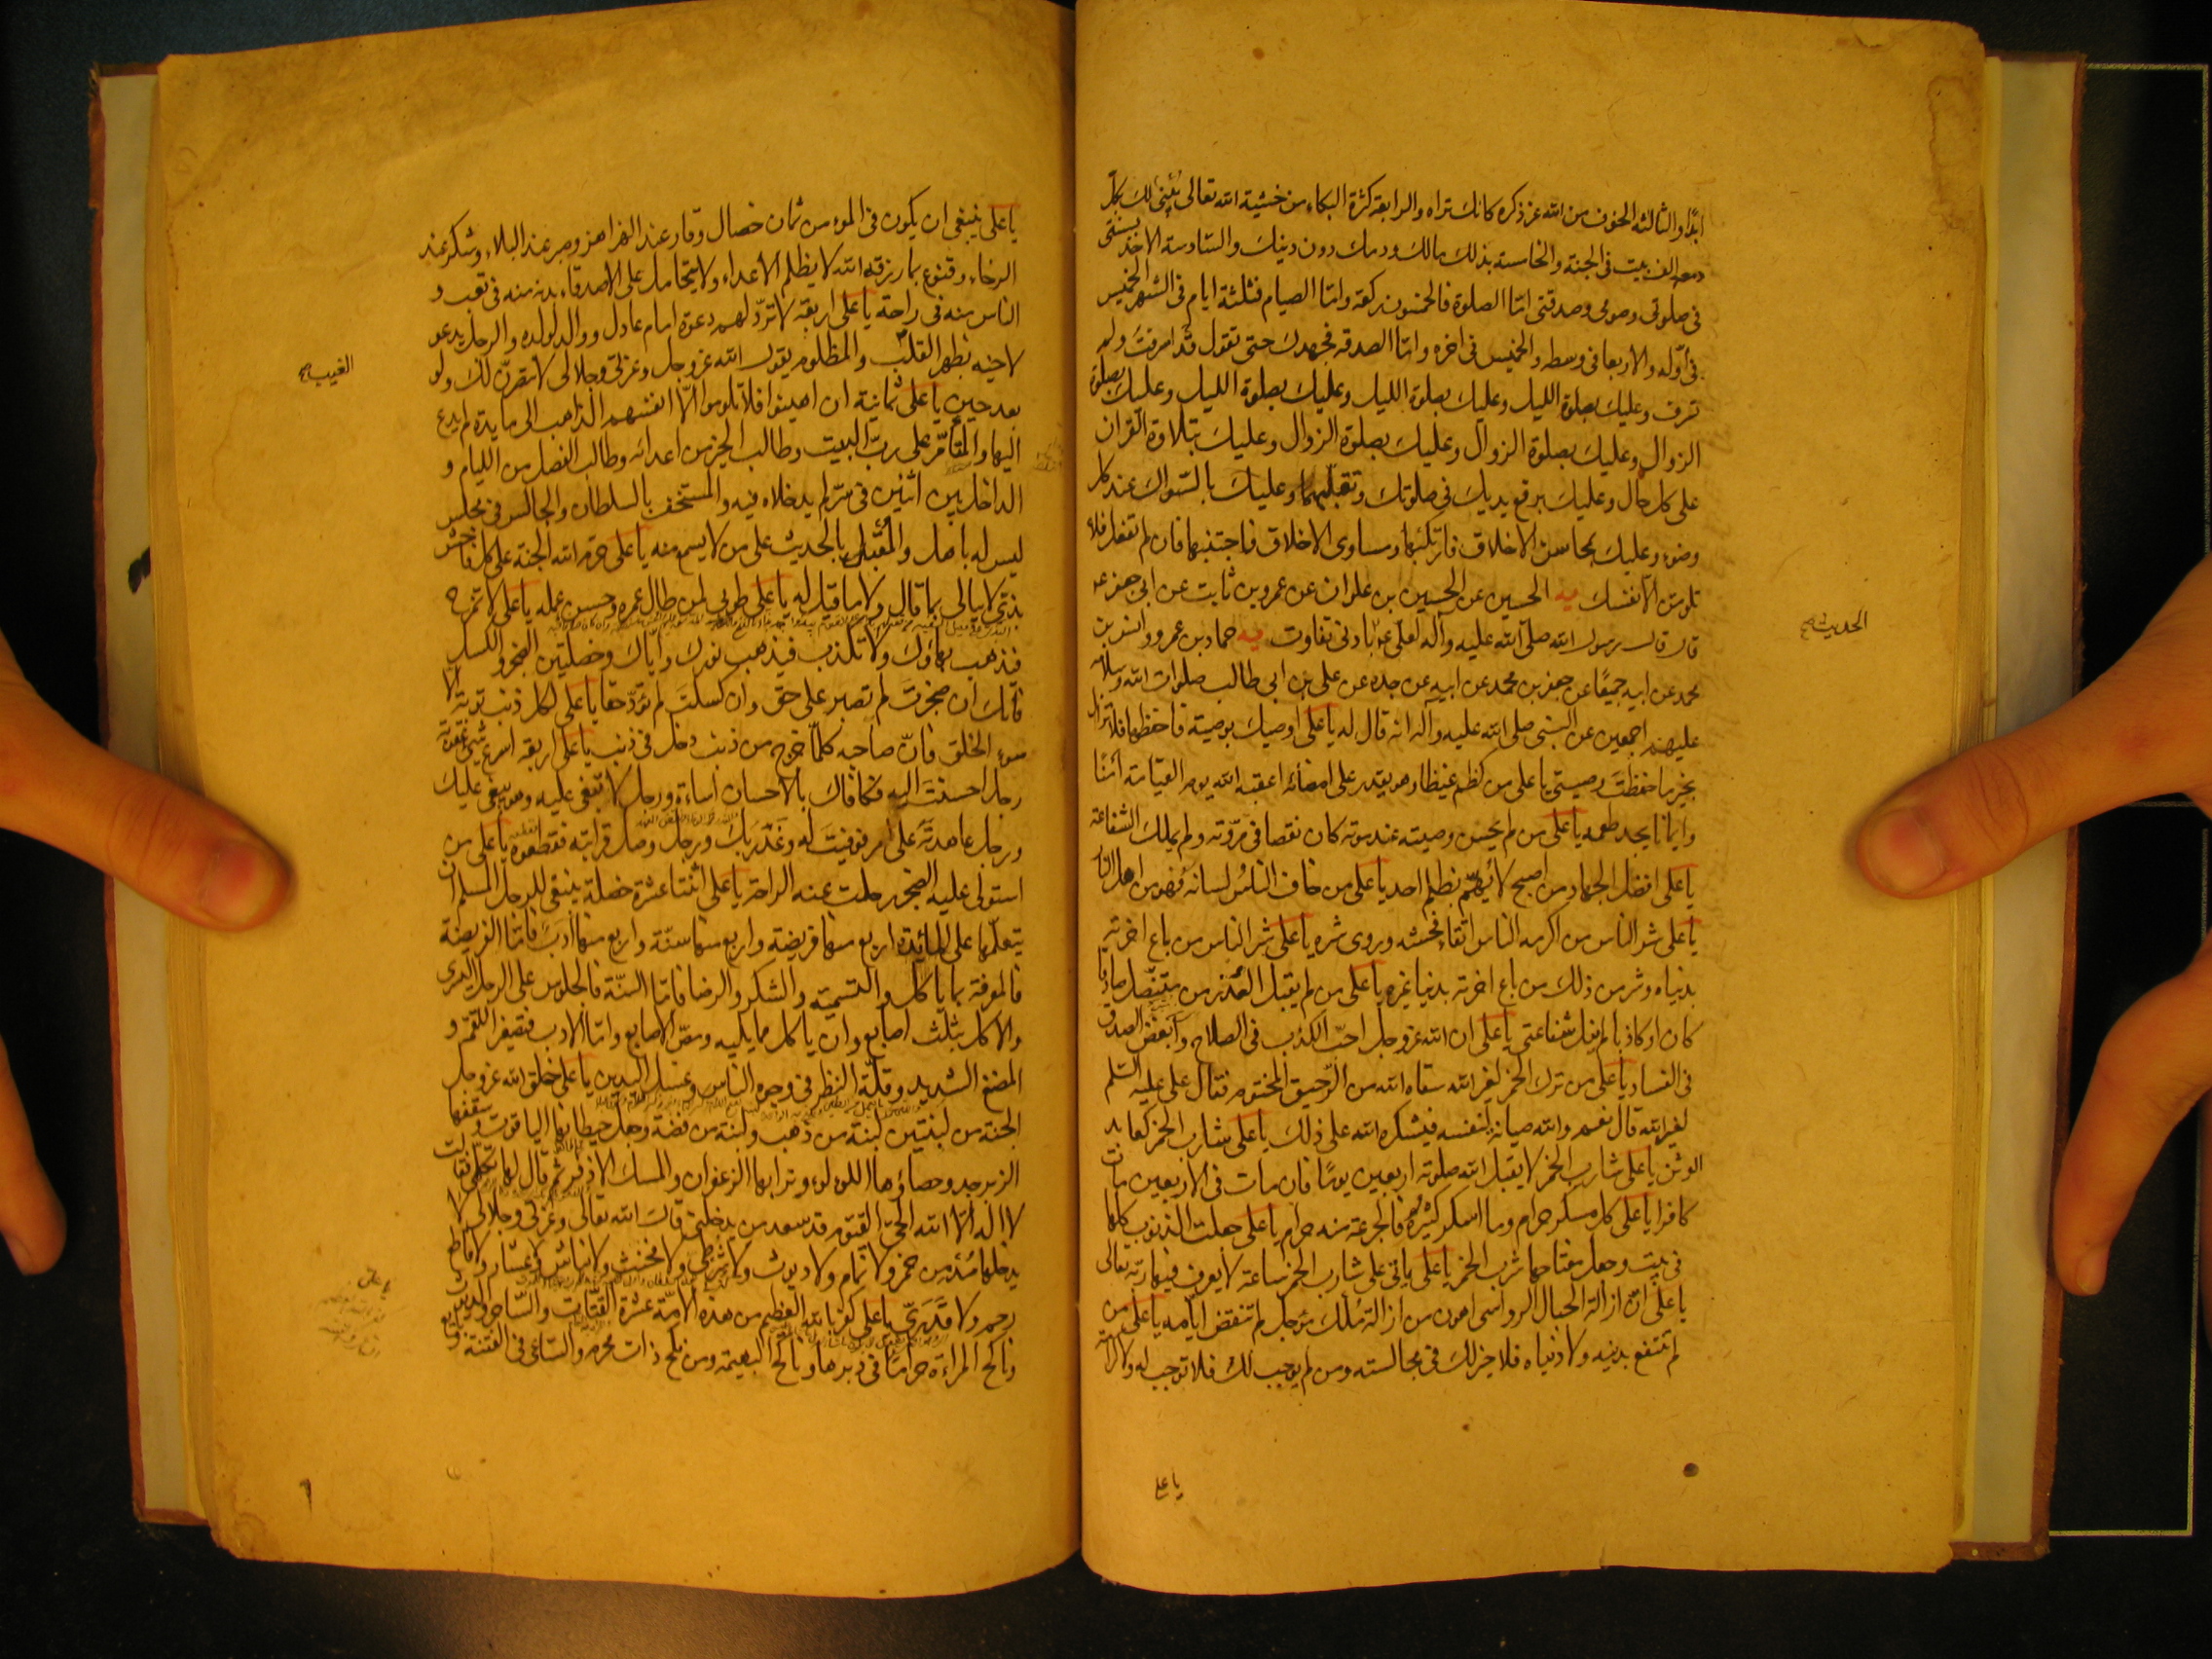 ابدا والثالثه الخوف من الله عز ذكره كانك تراه والرابعة كثرة البكاء من خشية الله تعالى يبنى لك بكل
دمعة الف بيت فى الجنة والخامسة بذلك مالك ودمك دون دينك والسادسة الاخذ بسنتى
فى صلوتى وصومى وصدقتى امّا الصلوة فالخمسون ركعة وامّا الصيام فثلثة ايام فى الشهر الخميس
فى اوّله والاربعا فى وسطه والخميس فى اخره وامّا الصدقه فجهدك حتى تقول قد اسرفت ولم
تسرف وعليك بصلوة الليل وعليك بصلوة الليل وعليك بصلوة الليل وعليك بصلوة
الزوال وعليك بصلوة الزوال وعليك بصلوة الزوال وعليك بتلاوة القران
على كل حال وعليك برفع يديك فى صلوتك وتقليبهما وعليك بالسّواك عند كل
وضوء وعليك بمحاسن الاخلاق فارتكبها ومساوى الاخلاق فاجتنبها فان لم تفعل فلا
تلومنّ الّا نفسك يه الحسين عن الحسين بن علوان عن عمرو بن ثابت عن ابى جعفر ع
قال قال رسول الله صلى الله عليه واله لعلى ع بادنى تفاوت يه حماد بن عمرو وانس بن
محمد عن ابيه جميعًا عن جعفر بن محمد عن ابيه عن جده عن على بن ابى طالب صلوات الله وسلامه
عليهم اجمعين عن النبى صلى الله عليه واله انه قال له يا على اوصيك بوصية فاحفظها فلا تزال
بخير ما حفظت وصيتى يا على من كظم غيظا وهو يقدر على امضائه اعقبه الله يوم القيامة امنًا
وايمانا يجد طعمه يا على من لم يحسن وصيته عند موته كان نقصا فى مروّته ولم يملك الشفاعة
يا على افضل الجهاد من اصبح لا يهمّ بظلم احد يا على من خاف الناسُ لسانهُ فهو من اهل النار
يا على شر الناس من اكرمه الناس اتقاء فحشه وروى شره يا على شر الناس من باع اخرته
بدنياه وشر من ذلك من باع اخرته بدنيا غيره يا على من لم يقبل العُذر من متنصّل صادقا
كان او كاذبا لم ينل شفاعتى يا على ان الله عز وجل احبّ الكذب فى الصلاح وابغض الصدق
فى الفساد يا على من ترك الخمر لغير الله سقاه الله من الرّحيق المختوم فقال على عليه السّلم
لغير الله قال نعم والله صيانة لنفسه فيشكره الله على ذلك يا على شارب الخمر كعابد
الوثن يا على شارب الخمر لا يقبل الله صلوته اربعين يومًا فان مات فى الاربعين مات
كافرا يا على كل مسكر حرام وما اسكر كثيره فالجرعة منه حرام يا على جعلت الذنوب كلها
فى بيت وجعل مفتاحها شرب الخمر يا على ياتى على شارب الخمر ساعة لا يعرف فيها ربّه تعالى
يا على انّ ازالة الجبال الرواسى اهون من ازالة مُلك مؤجل لم تنقض ايّامه يا على من
لم تنتفع بدينه ولا دنياه فلا خير لك فى مجالسته ومن لم يوجب لك فلا توجب له ولا كرامة
الحديث صح
يا على
يا على ينبغى ان يكون فى المؤمن ثمان خصال وقار عند الهزاهز وصبر عند البلاء وشكر عند
الرخاء وقنوع بما رزقه الله لا يظلم الاعداء ولا يتحامل على الاصدقاء بدنه منه فى تعب و
الناس منه فى راحة يا على اربعة لا تردّ لهم دعوة امام عادل ووالد لولده والرجل يدعو
لاخيه بظهر القلب والمظلوم يقول الله عز وجل وعزتى وجلالى لانتصرنّ لك ولو
بعد حين يا على ثمانية ان اهينوا فلا تلوموا الّا انفسهم الذاهب الى مايدة لم يدع
اليها والمتأمّر على ربّ البيت وطالب الخير من اعدائه وطالب الفضل من الليام و
الداخل بين اثنين فى سرّ لم يدخلاه فيه والمستخف بالسلطان والجالس فى مجلس
ليس له باهل والمُقبل بالحديث على من لا يسمع منه يا على حرّم الله الجنة على كل فاحش
بذىّ لا يبالى بما قال ولا ما قيل له يا على طوبى لمن طال عمره وحسن عمله يا على لا تمزح
فيذهب بهاؤك ولا تكذب فيذهب نورك واياك وخصلتين الضجر والكسل
فانك ان ضجرت لم تصبر على حق وان كسلت لم تؤدّ حقا يا على لكل ذنب توبة الا
سوء الخلق فانّ صاحبه كلما خرج من ذنب دخل فى ذنب يا على اربعة اسرع شئ عقوبة
رجل احسنت اليه فكافاك بالاحسان اساءة ورجل لا تبغى عليه وهو يبغى عليك
ورجل عاهدته على امر فوفيت له وغَدَر بك ورجل وصل قرابته فقطعوه يا على من
استولى عليه الضجر رحلت عنه الراحة يا على اثنتا عشرة خصلة ينبغى للرجل المسلم ان
يتعلّمها على المائدة اربع منها فريضة واربع منها سنّة واربع منها ادب فامّا الفريضة
فالمعرفة بما ياكل والتسمية والشكر والرضا فامّا السنّة فالجلوس على الرجل اليسرى
والاكل بثلث اصابع وان ياكل مما يليه ومصّ الاصابع وامّا الادب فتصغير اللقم و
المضغ الشديد وقلّة النظر فى وجوه الناس وغسل اليدين يا على خلق الله عز وجل
الجنة من لبنتين لبنة من ذهب ولبنة من فضة وجعل حيطانها الياقوت وسقفها
الزبرجد وحصاؤها اللؤلؤ وترابها الزعفران والمسك الاذفر ثم قال لها تكلمى فقالت
لا اله الّا الله الحىّ القيّوم قد سعد من يدخلنى قال الله تعالى وعزتى وجلالى لا
يدخلها مُدْمن خمر ولا نمام ولا ديوث ولا شرطى ولا مخنث ولا نباش ولا عشار ولا قاطع
رحم ولا قَدَرىّ يا على كفر بالله العظيم من هذه الامّة عشرة القتّات والسّاحر والديوث
وناكح المراءة حرامًا فى دبرها وناكح البهيمة ومن نكح ذات محرم والسّاعى فى الفتنة وبايع
الغيب صح
يا على